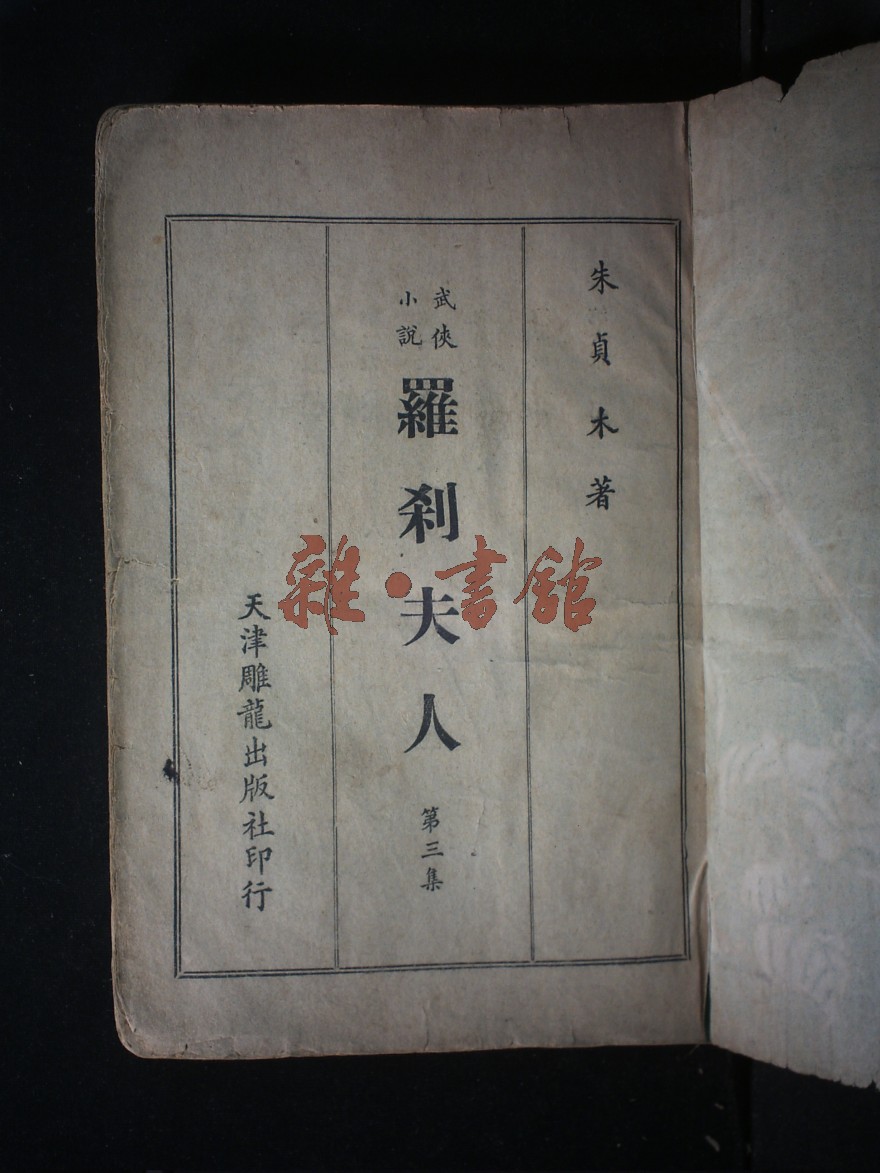 朱貞木著
武俠
小說
羅刹夫人
第三集
天津雕龍出版社印行
雜·書舘